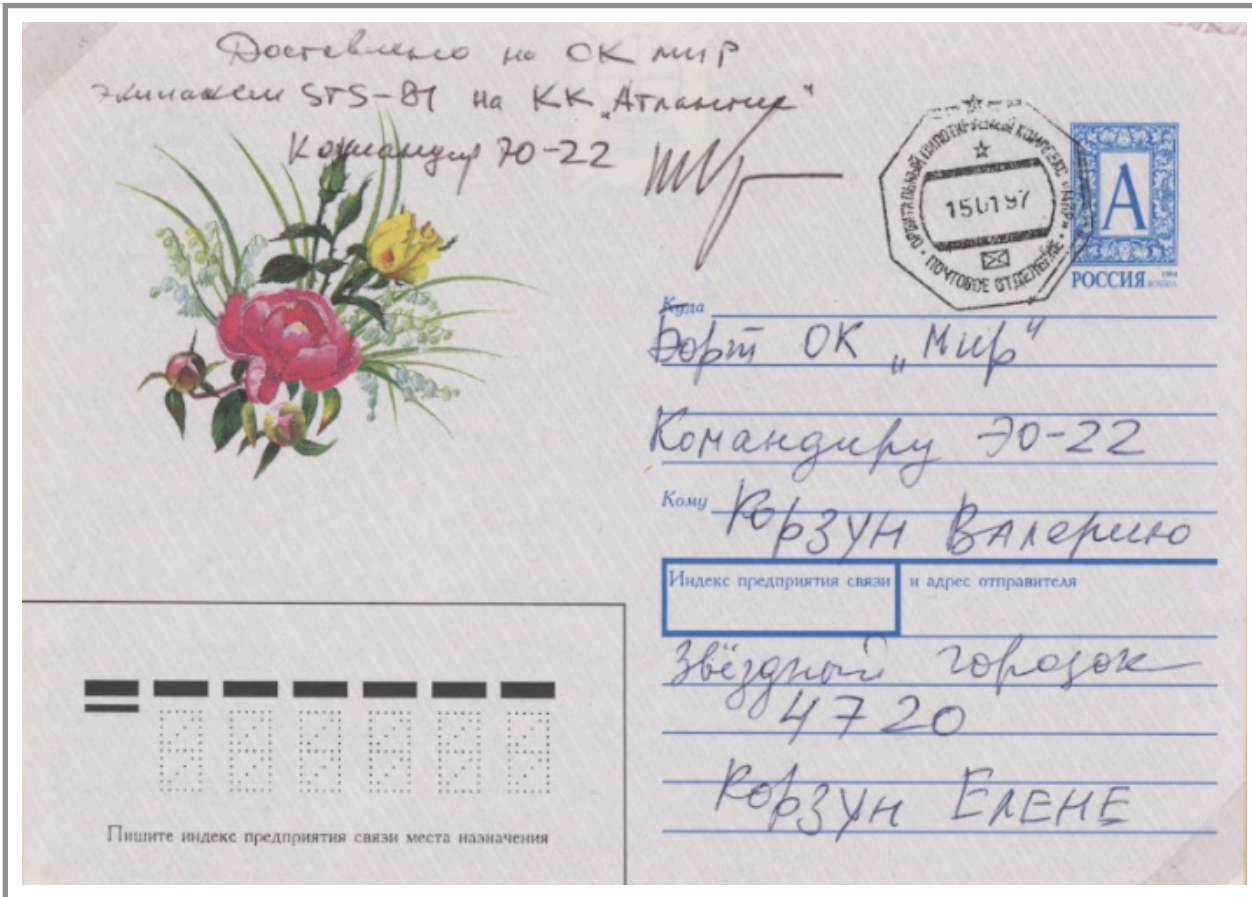 Доставлено на ОК мир
экипажем STS-81 на КК „Атлантис“
Командир ЭО-22
ОРБИТАЛЬНЫЙ ПИЛОТИРУЕМЫЙ КОМПЛЕКС «МИР»
150197
ПОЧТОВОЕ ОТДЕЛЕНИЕ
А
РОССИЯ
1994
Куда
Борт ОК „Мир“
Командиру ЭО-22
Кому
Корзун Валерию
Индекс предприятия связи и адрес отправителя
Звёздный городок
4720
Корзун ЕЛЕНЕ
Пишите индекс предприятия связи места назначения